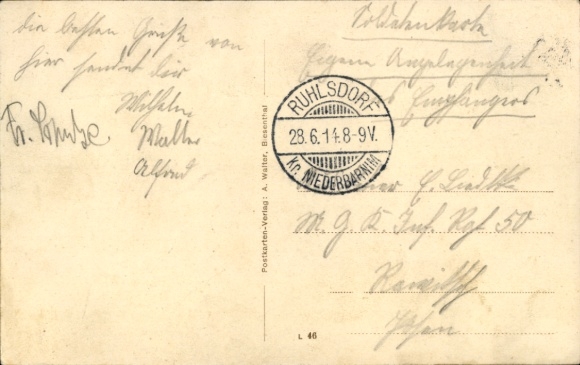 die besten Grüße von
hier sendet dir
Wilhelm
Walter
Alfred
Fr.
Soldatenkarte
Eigene Angelegenheit
Empfängers
RUHLSDORF
28.6.14.8-9V.
Kr. NIEDERBARNIM
Postkarten-Verlag: A. Walter, Biesenthal
M. G. K. Inf. Rgt 50
Rawitsch
Posen
L 46